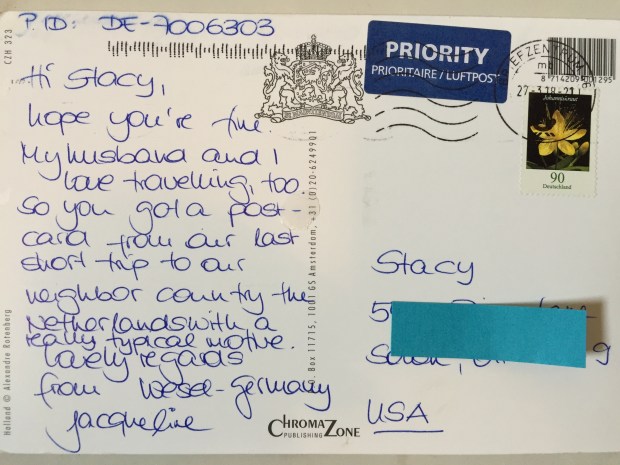 P.ID: DE-7006303
Hi Stacy,
hope you're fine.
My husband and I
love travelling, too.
So you got a post-
card from our last
short trip to our
neighbor country the
Netherlands with a
really typical motive.
Lovely regards
from Wesel-Germany
Jacqueline
CZH 323
Holland © Alexandre Rotenberg
P.O. Box 11715, 1001 GS Amsterdam, +31 (0)20-6249901
CHROMAZONE
PUBLISHING
PRIORITY
PRIORITAIRE / LUFTPOST
27-3.18-21
Johanniskraut
90
Deutschland
Stacy
USA